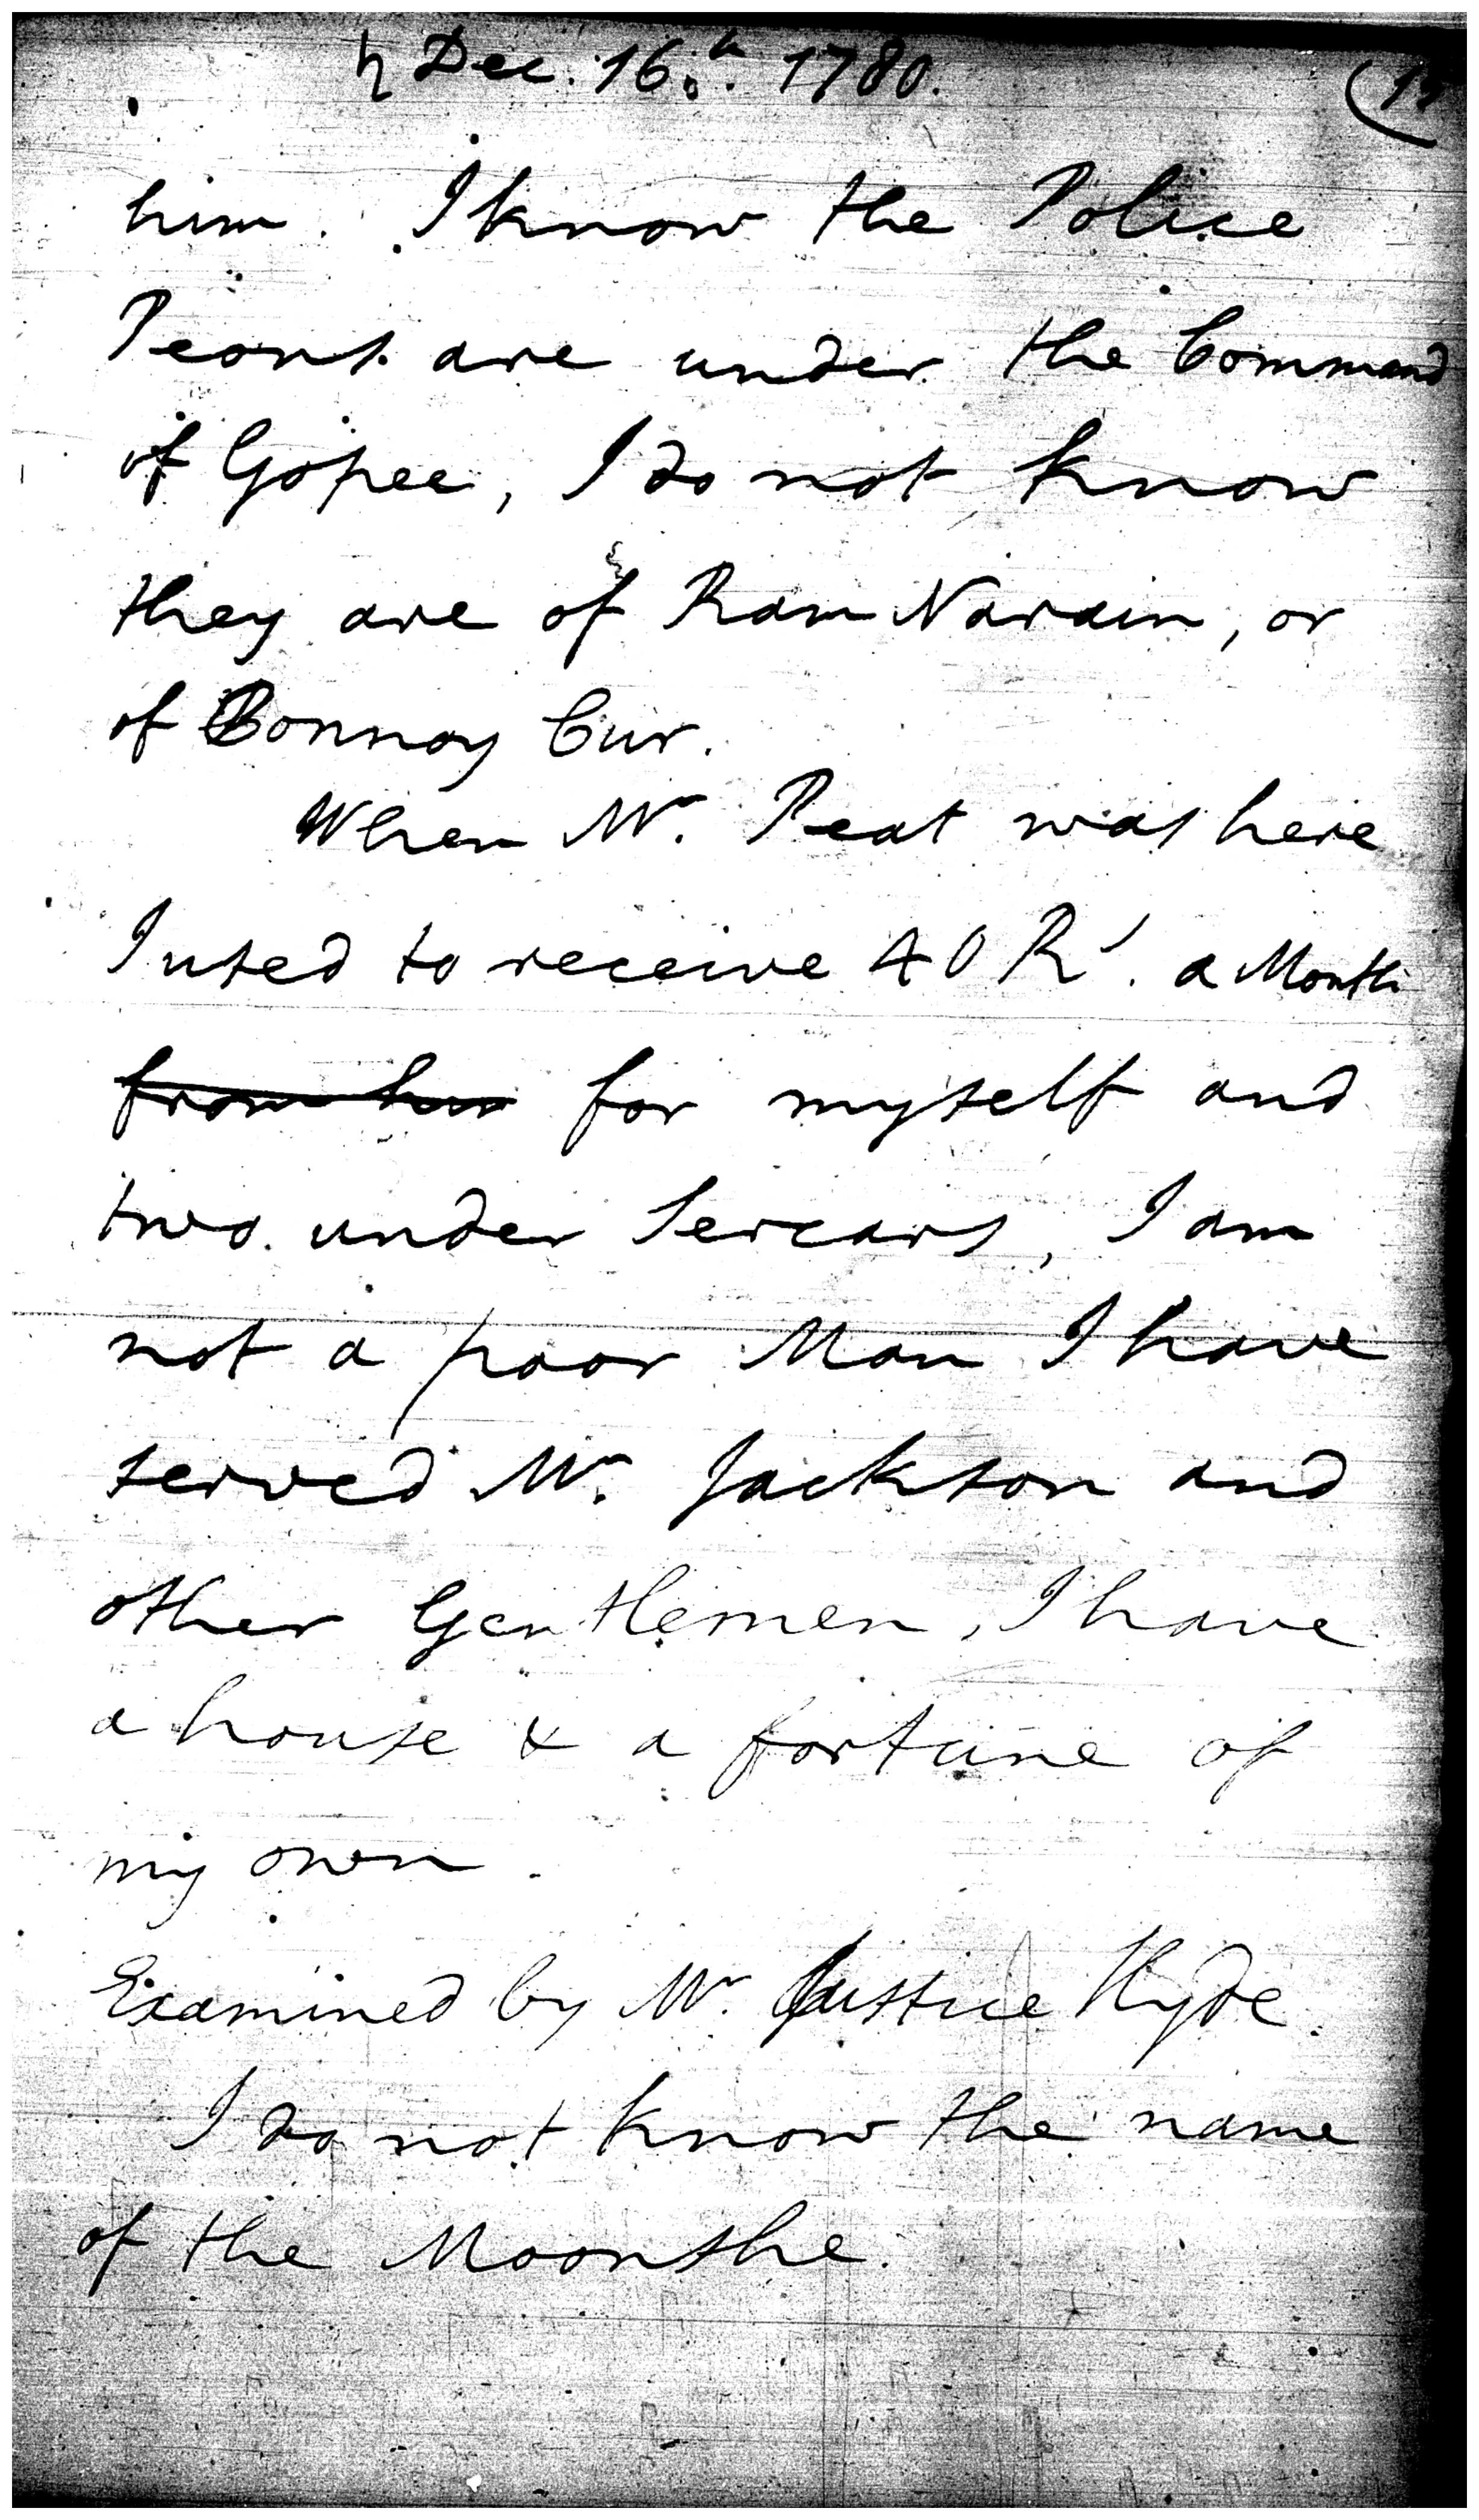 ♄ Dec. 16.th 1780.
him. I know the Police
Peons are under the Command
of Gopee, I do not know
they are of Ram Narain, or
of Bonnoy Cur.
When Mr. Peat was here
I used to receive 40 Rs. a Month
from him for myself and
two under Sercars, I am
not a poor Man I have
served Mr. Jackson and
other Gentlemen, I have
a house & a fortune of
my own.
Examined by Mr. Justice Hyde.
I do not know the name
of the Moonshe.